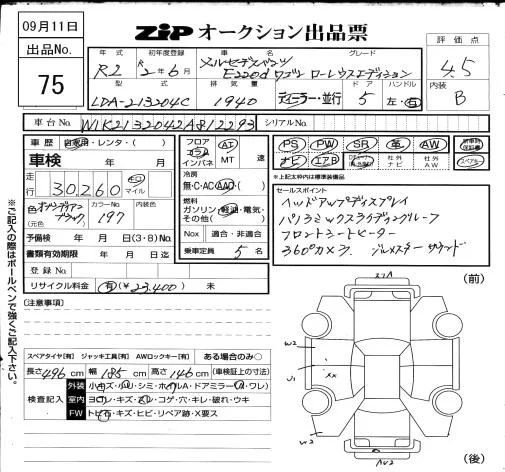 09月11日
ZIP オークション出品票
出品No.
75
年式 初年度登録 車名 グレード
R2 R2年6月 メルセデスベンツ
E220d ワゴン ローレウスエディション
評価点
4.5
内装
B
型式 排気量 ドア ハンドル
LDA-213204C 1940 ディーラー・並行 5 左・右
車台No. W1K2132042A812293 シリアルNo.
車歴 自家用・レンタ・( )
車検 年 月
走行 30,260 キロ マイル
色 オブシディアンブラック カラーNo. 197 内装色
(元色)
予備検 年 月 日(3・8)No.
書類有効期限 年 月 日迄
登録No.
リサイクル料金 有(¥23,400) 未
フロア コラム インパネ AT MT 速
冷房
無・C・AC・AAC・( )
燃料
ガソリン・軽油・電気・その他( )
Nox 適合・非適合
乗車定員 5 名
PS PW SR 革 AW
ナビ エアB 社外ナビ 社外AW
※上記太枠内は標準装備品
セールスポイント
ヘッドアップディスプレイ
パノラミックスライディングルーフ
フロントシートヒーター
360°カメラ ブルメスターサウンド
[注意事項]
スペアタイヤ[有] ジャッキ工具[有] AWロックキー[有] ある場合のみ○
長さ 496 cm 幅 185 cm 高さ 146 cm (車検証上の寸法)
検査記入
外装 小キズ・小凹・シミ・ホイルA・ドアミラー(A・ワレ)
室内 ヨゴレ・キズ・スレ・コゲ・穴・キレ・破れ・ウキ
FW トビ石・キズ・ヒビ・リペア跡・X要ス
※ご記入の際はボールペンで強くご記入下さい。
(前)
W2
U1
XX
W2
AU2
(後)